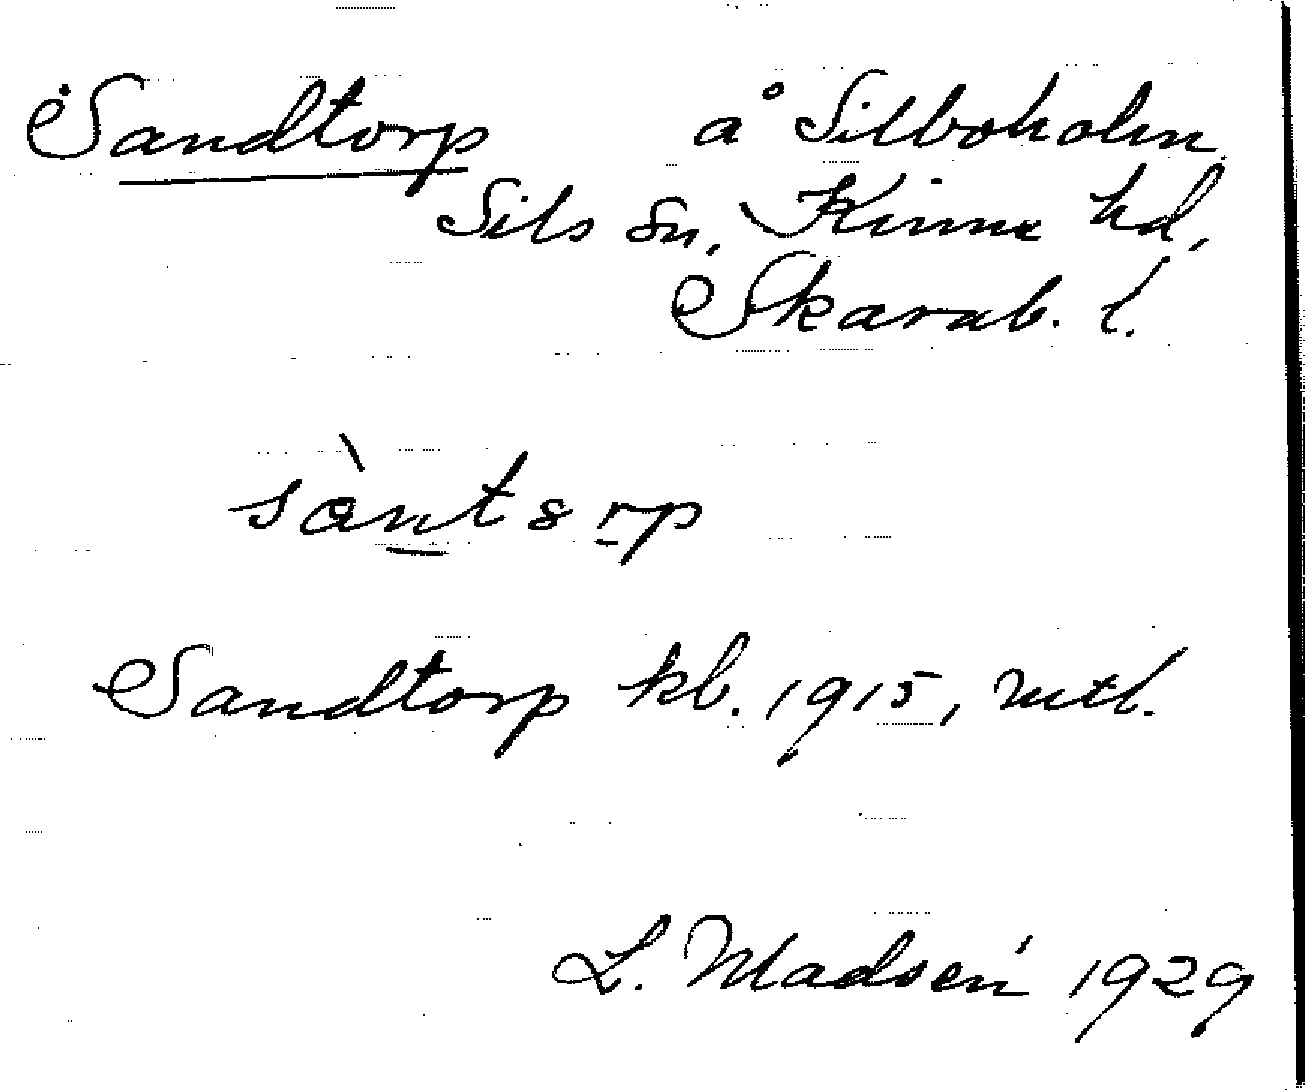 Sandtorp å Silboholm
Sils sn, Kinne hd,
Skarab. l.
sàntɷrp
Sandtorp kb. 1915, mtl.
L. Madsén 1929